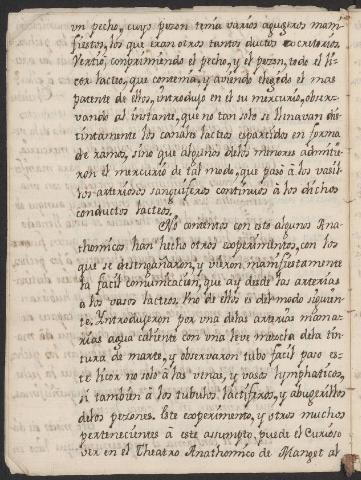 un pecho, cuyo pezon tenia varios agugeros mani-
fiestos, los que eran otros tantos ductos excritorios
Vertiò, comprimiendo el pecho, y el pezon, todo el li-
cor lacteo, que contenia, y aviendo elegido el mas
patente de ellos, introdujo en el su mercurio, obser-
vando al instante, que no tan solo se llenavan dis-
tintamente los canales lacteos esparcidos en forma
de ramos, sino que algunos delos menores admitie-
ron el mercurio de tal modo, que pasò à los vasil-
los arteriosos sanguiferos continuos à los dichos
conductos lacteos.
No contentos con este algunos Ana-
thomicos han hecho otros experimentos, con los
que se desengañaron, y vieron manifiestamente
la facil comunicacion, que ay desde las arterias
a los vasos lacteos. Uno de ellos es del modo siguien-
te. Introdujeron por una delas arterias mama-
rias agua caliente con una leve mezcla dela tin-
tura de marte, y observaron tubo facil paso es-
te licor no solo à las venas, y vasos lymphaticos,
si tambien à los tubulos lactiferos, y abugerillos
delos pezones. Este experimento, y otros muchos
pertenecientes à este assumpto, puede el Curioso
ver en el Theatro Anathomico de Manget al